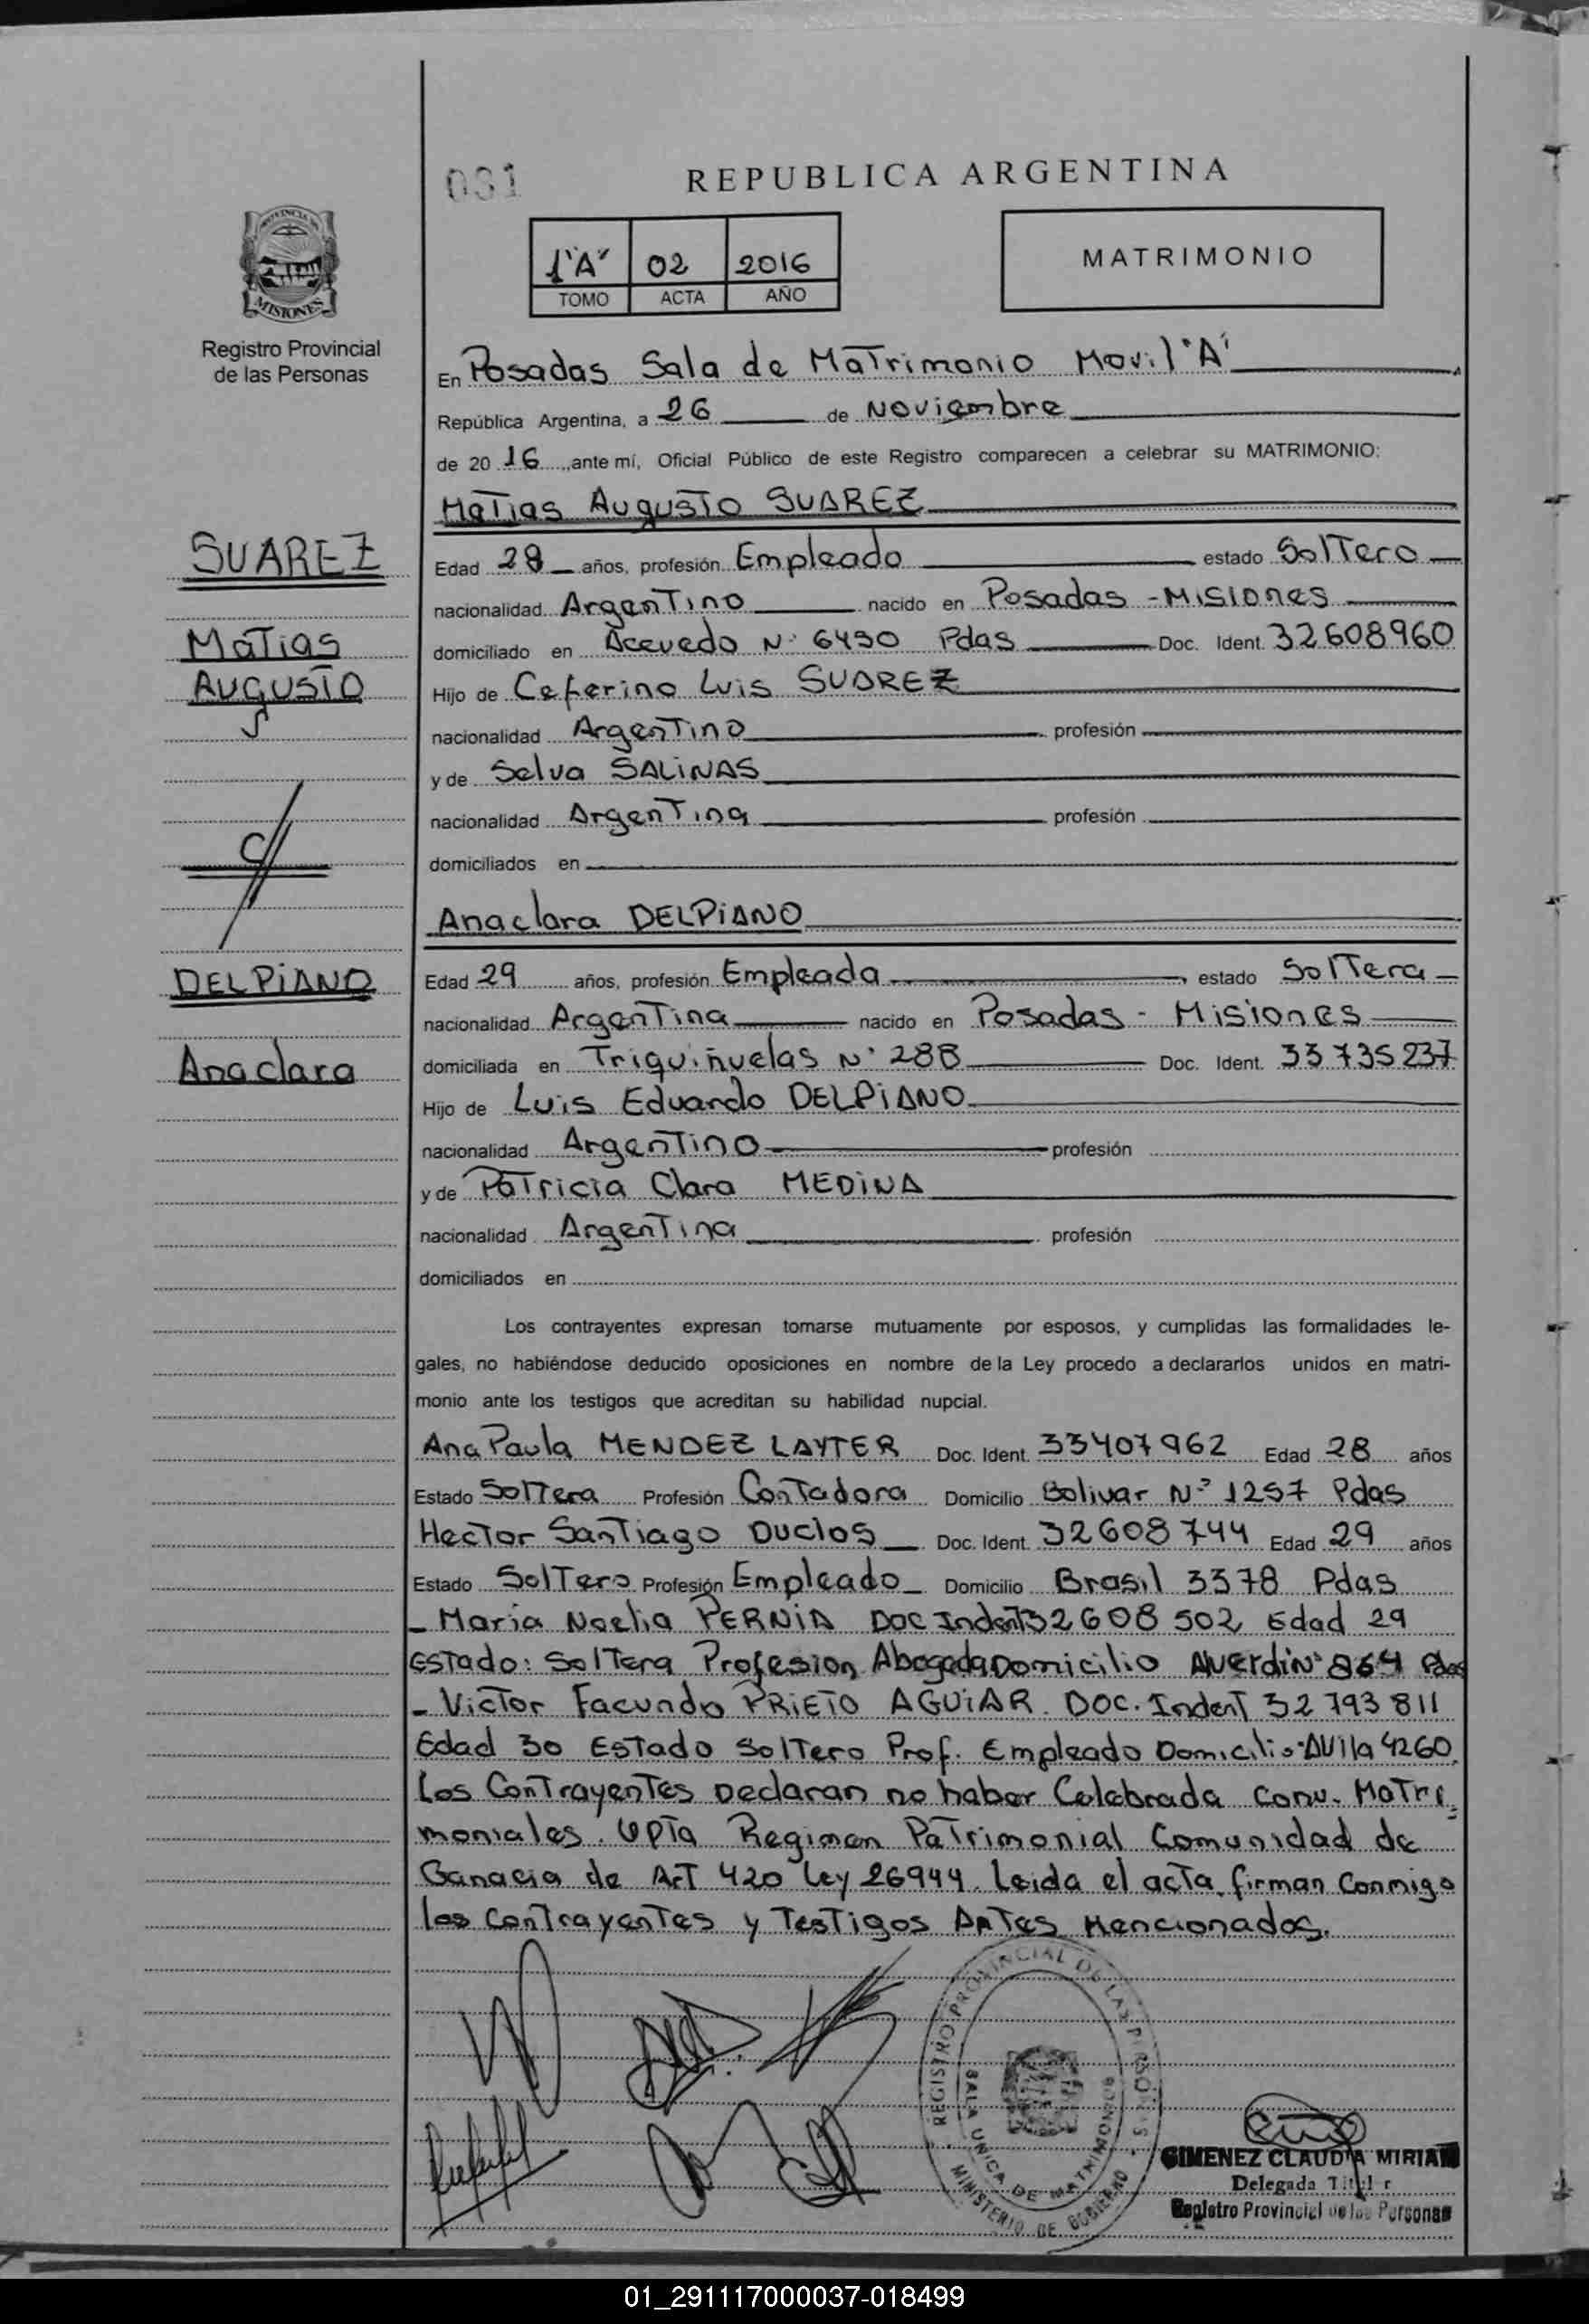 031
REPUBLICA ARGENTINA
1"A" 02 2016
TOMO ACTA AÑO
MATRIMONIO
PROVINCIA DE
MISIONES
Registro Provincial
de las Personas
En Posadas Sala de Matrimonio Movil "A"
República Argentina, a 26 de Noviembre
de 20 16 , ante mí, Oficial Público de este Registro comparecen a celebrar su MATRIMONIO:
Matias Augusto SUAREZ
SUAREZ
Edad 28 años, profesión Empleado estado Soltero
nacionalidad Argentino nacido en Posadas - Misiones
Matias
domiciliado en Acevedo N° 6430 Pdas Doc. Ident. 32608960
Augusto
Hijo de Ceferino Luis SUAREZ
nacionalidad Argentino profesión
y de Selva SALINAS
nacionalidad Argentina profesión
c/
domiciliados en
Anaclara DELPIANO
DELPIANO
Edad 29 años, profesión Empleada estado Soltera
nacionalidad Argentina nacido en Posadas - Misiones
Anaclara
domiciliada en Triquiñuelas N° 288 Doc. Ident. 33735237
Hijo de Luis Eduardo DELPIANO
nacionalidad Argentino profesión
y de Patricia Clara MEDINA
nacionalidad Argentina profesión
domiciliados en
Los contrayentes expresan tomarse mutuamente por esposos, y cumplidas las formalidades le-
gales, no habiéndose deducido oposiciones en nombre de la Ley procedo a declararlos unidos en matri-
monio ante los testigos que acreditan su habilidad nupcial.
Ana Paula MENDEZ LAYTER Doc. Ident. 33407962 Edad 28 años
Estado Soltera Profesión Contadora Domicilio Bolivar N° 1257 Pdas
Hector Santiago Duclos Doc. Ident. 32608744 Edad 29 años
Estado Soltero Profesión Empleado Domicilio Brasil 3378 Pdas
- Maria Noelia PERNIA Doc Indent 32608502 Edad 29
Estado: Soltera Profesion Abogada Domicilio Alverdi N° 864 Pdas
- Victor Facundo PRIETO AGUIAR. DOC. Indent 32793811
Edad 30 Estado Soltero Prof. Empleado Domicilio Avila 4260.
Los Contrayentes Declaran no haber Celebrada Conv. Matri
moniales. Opta Regimen Patrimonial Comunidad de
Ganacia de Art 420 Ley 26944. Leida el acta, firman Conmigo
los Contrayentes y Testigos Antes Mencionados.
REGISTRO PROVINCIAL DE LAS PERSONAS
SALA UNICA DE MATRIMONIOS
MINISTERIO DE GOBIERNO
GIMENEZ CLAUDIA MIRIAM
Delegada Titular
Registro Provincial de las Personas
01_291117000037-018499